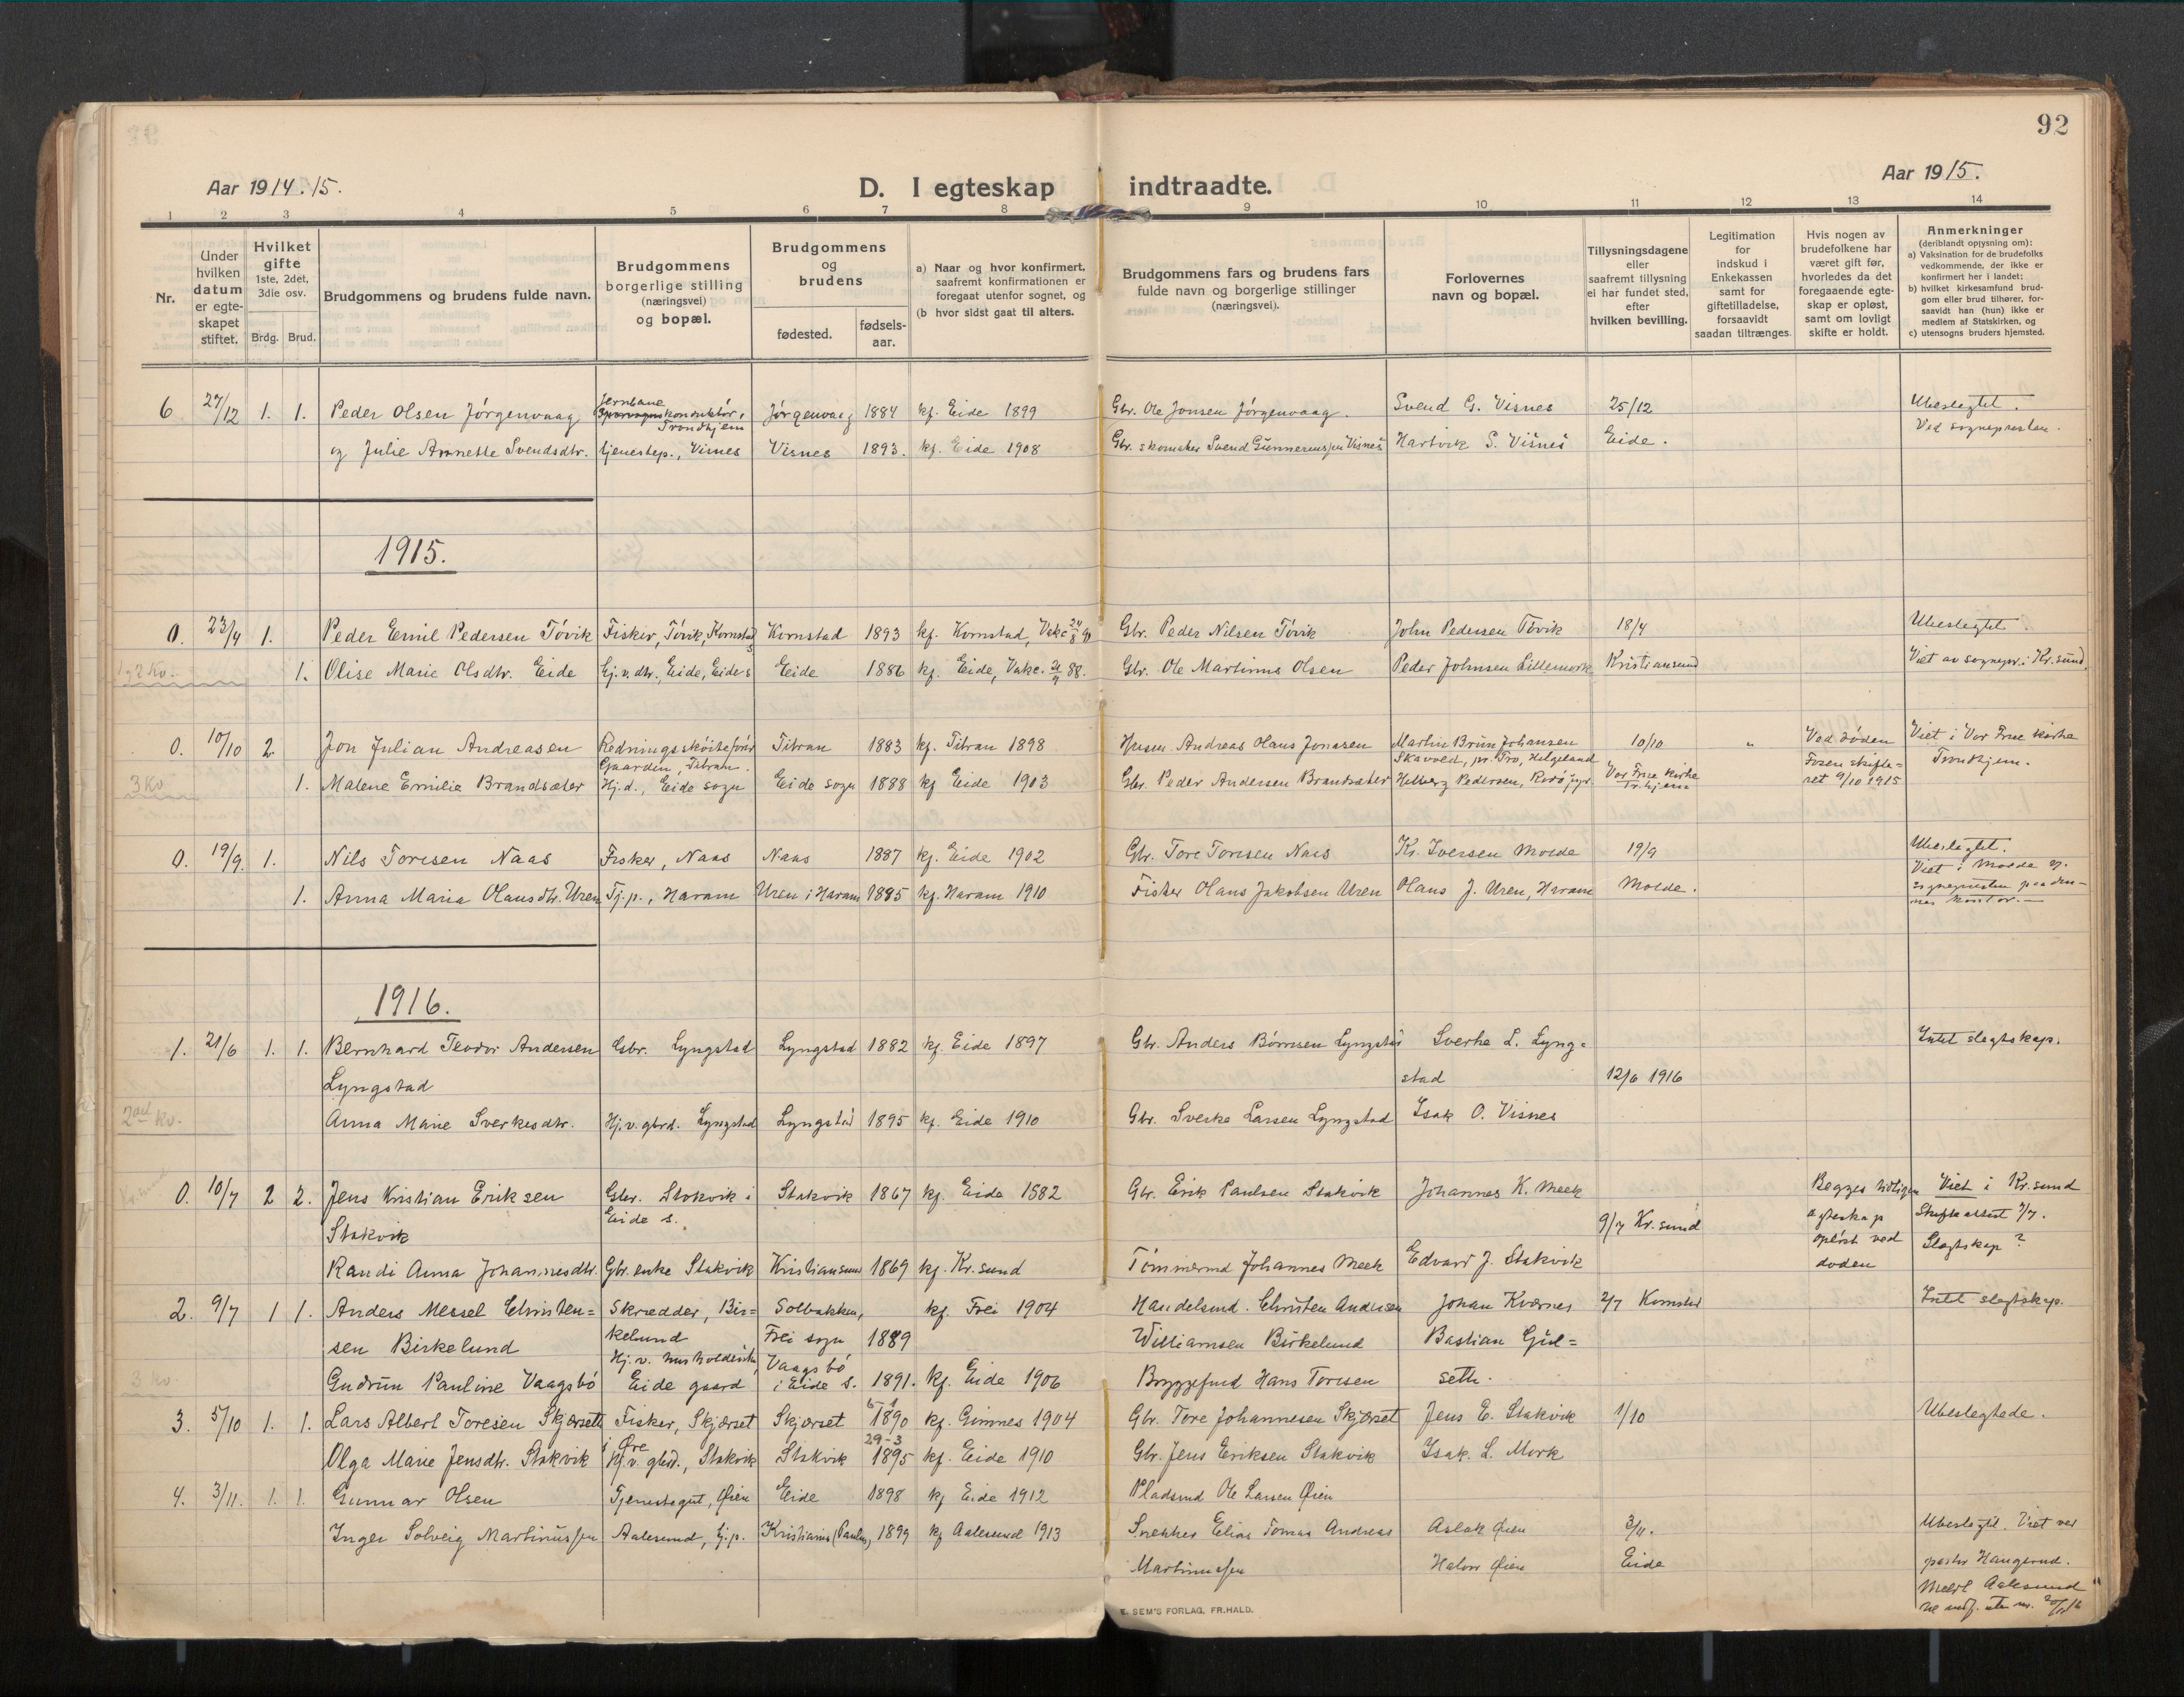 92
Aar 1914.15.
D. I egteskap indtraadte.
Aar 1915.
1 2 3 4 5 6 7 8 9 10 11 12 13 14
Nr.
Under hvilken datum er egteskapet stiftet.
Hvilket gifte 1ste, 2det, 3die osv.
Brdg. Brud.
Brudgommens og brudens fulde navn.
Brudgommens borgerlige stilling (næringsvei) og bopæl.
Brudgommens og brudens
fødested.
fødsels-aar.
a) Naar og hvor konfirmert, saafremt konfirmationen er foregaat utenfor sognet, og
(b hvor sidst gaat til alters.
Brudgommens fars og brudens fars fulde navn og borgerlige stillinger (næringsvei).
Forlovernes navn og bopæl.
Tillysningsdagene eller saafremt tillysning ei har fundet sted, efter hvilken bevilling.
Legitimation for indskud i Enkekassen samt for giftetilladelse, forsaavidt saadan tiltrænges.
Hvis nogen av brudefolkene har været gift før, hvorledes da det foregaaende egteskap er opløst, samt om lovligt skifte er holdt.
Anmerkninger
(deriblandt opjysning om):
a) Vaksination for de brudefolks vedkommende, der ikke er konfirmert her i landet;
b) hvilket kirkesamfund brudgom eller brud tilhører, forsaavidt han (hun) ikke er medlem af Statskirken, og
c) utensogns bruders hjemsted.
6 27/12 1. 1. Peder Olsen Jörgenvaag Jernbane konduktör, Trondhjem Jörgenvaag 1884 kf. Eide 1899 Gbr. Ole Jonsen Jörgenvaag. Svend G. Visnes 25/12 Ubeslegtet.
og Julie Annette Svendsdtr. tjenestep., Visnes Visnes 1893. kf. Eide 1908 Gbr. skomaker Svend Gunnerussen Visnes Hartvik S. Visnes Eide. Ved sognepresten.
1915.
0. 23/4 1. Peder Emil Pedersen Tövik Fisker, Tövik, Kornstad Kornstad 1893 kf. Kornstad, Vakc. 24/8 Gbr. Peder Nilsen Tövik John Pedersen Tövik 18/4 Ubeslegtet.
1. Olise Marie Olsdtr. Eide Gj.v.dtr., Eide, Eide s Eide 1886 kf. Eide, Vakc. 88. Gbr. Ole Martinus Olsen Peder Johnsen Lillemork Kristiansund Viet av sognepr. i Kr.sund
0. 10/10 2. Jon Julian Andreasen Redningssköitefører Gaarden, Titran. Titran 1883 kf. Titran 1898 Husm. Andreas Olaus Jonasen Martin Brun Johansen 10/10 " Ved döden Viet i Vor Frue kirke
3 Kv 1. Malene Emilie Brandsæter Hj.d., Eide sogn Eide sogn 1888 kf Eide 1903 Gbr. Peder Andersen Brandsæter Helberg Pedersen, Vor Frue Kirke Tr.hjem Fosen skifteret 9/10 1915 Trondhjem.
0. 19/9. 1. Nils Toresen Naas Fisker, Naas Naas 1887 kf. Eide 1902 Gbr. Tore Toresen Naas Kr. Iversen Molde 19/9 Ubeslegtet.
1. Anna Maria Olausdtr. Uren Tj.p., Haram Uren i Haram 1895 kf. Haram 1910 Fisker Olaus Jakobsen Uren Olaus J. Uren, Haram Molde. Viet i Molde av sognepresten paa dennes kontor.
1916.
1. 21/6 1. 1. Bernhard Teodor Andersen Gbr. Lyngstad Lyngstad 1882 kf. Eide 1897 Gbr. Anders Börresen Lyngstad Sverke L. Lyng- Intet slegtskap.
Lyngstad stad 12/6 1916
2 kv. Anna Marie Sverkesdtr. Hj.v.gbrd. Lyngstad Lyngstad 1895 kf. Eide 1910 Gbr. Sverke Larsen Lyngstad Isak O. Visnes
0. 10/7 2 2. Jens Kristian Eriksen Gbr. Stokvik i Stakvik 1867 kf. Eide 1882 Gbr. Erik Paulsen Stakvik Johannes K. Meek Begges tidligere Viet i Kr.sund
Stakvik Eide s. 9/7 Kr.sund egteskap Skifteattest 7/7.
Randi Anna Johannesdtr. Gbr. enke Stakvik Kristiansund 1869 kf. Kr.sund Tömmermd Johannes Meek Edvard J. Stakvik oplöst ved döden Slegtskap?
2. 9/7 1 1. Anders Messel Christen- Skrædder, Bir- Solbakken, kf. Frei 1904 Handelsmd. Christen Andersen Johan Kvernes 2/7 Kornstad Intet slegtskap.
sen Birkelund kelund Frei sogn 1889 Williamsen Birkelund Bastian Gul-
3 kv. Gudrun Pauline Vaagsbö Hj.v. husholderske Eide gaard Vaagsbö i Eide s. 1891. kf. Eide 1906 Bryggefmd Hans Toresen seth.
3. 5/10 1. 1. Lars Albert Toresen Skjærset Fisker, Skjærset i Øre Skjærset 1890 kf. Gimnes 1904 Gbr. Tore Johannesen Skjærset Jens E. Stakvik 1/10 Ubeslegtede.
Olga Marie Jensdtr. Stakvik Hj.v. gbrd., Stakvik Stakvik 29-3 1895 kf. Eide 1910 Gbr. Jens Eriksen Stakvik Isak. L. Mork
4. 3/11. 1. 1. Gunnar Olsen Tjenestegut, Øien Eide 1898 kf Eide 1912 Pladsmd Ole Larsen Øien
Inger Solveig Martinussen Aalesund, tj.p. Kristiania (Paulus) 1899 kf Aalesund 1913 Snekker Elias Tomas Andreas Aslak Øien 3/11. Ubeslegtet. Viet ved
Martinussen Halvor Øien Eide pastor Haugerud.
Meldt Aalesund
E. SEM'S FORLAG, FR.HALD.